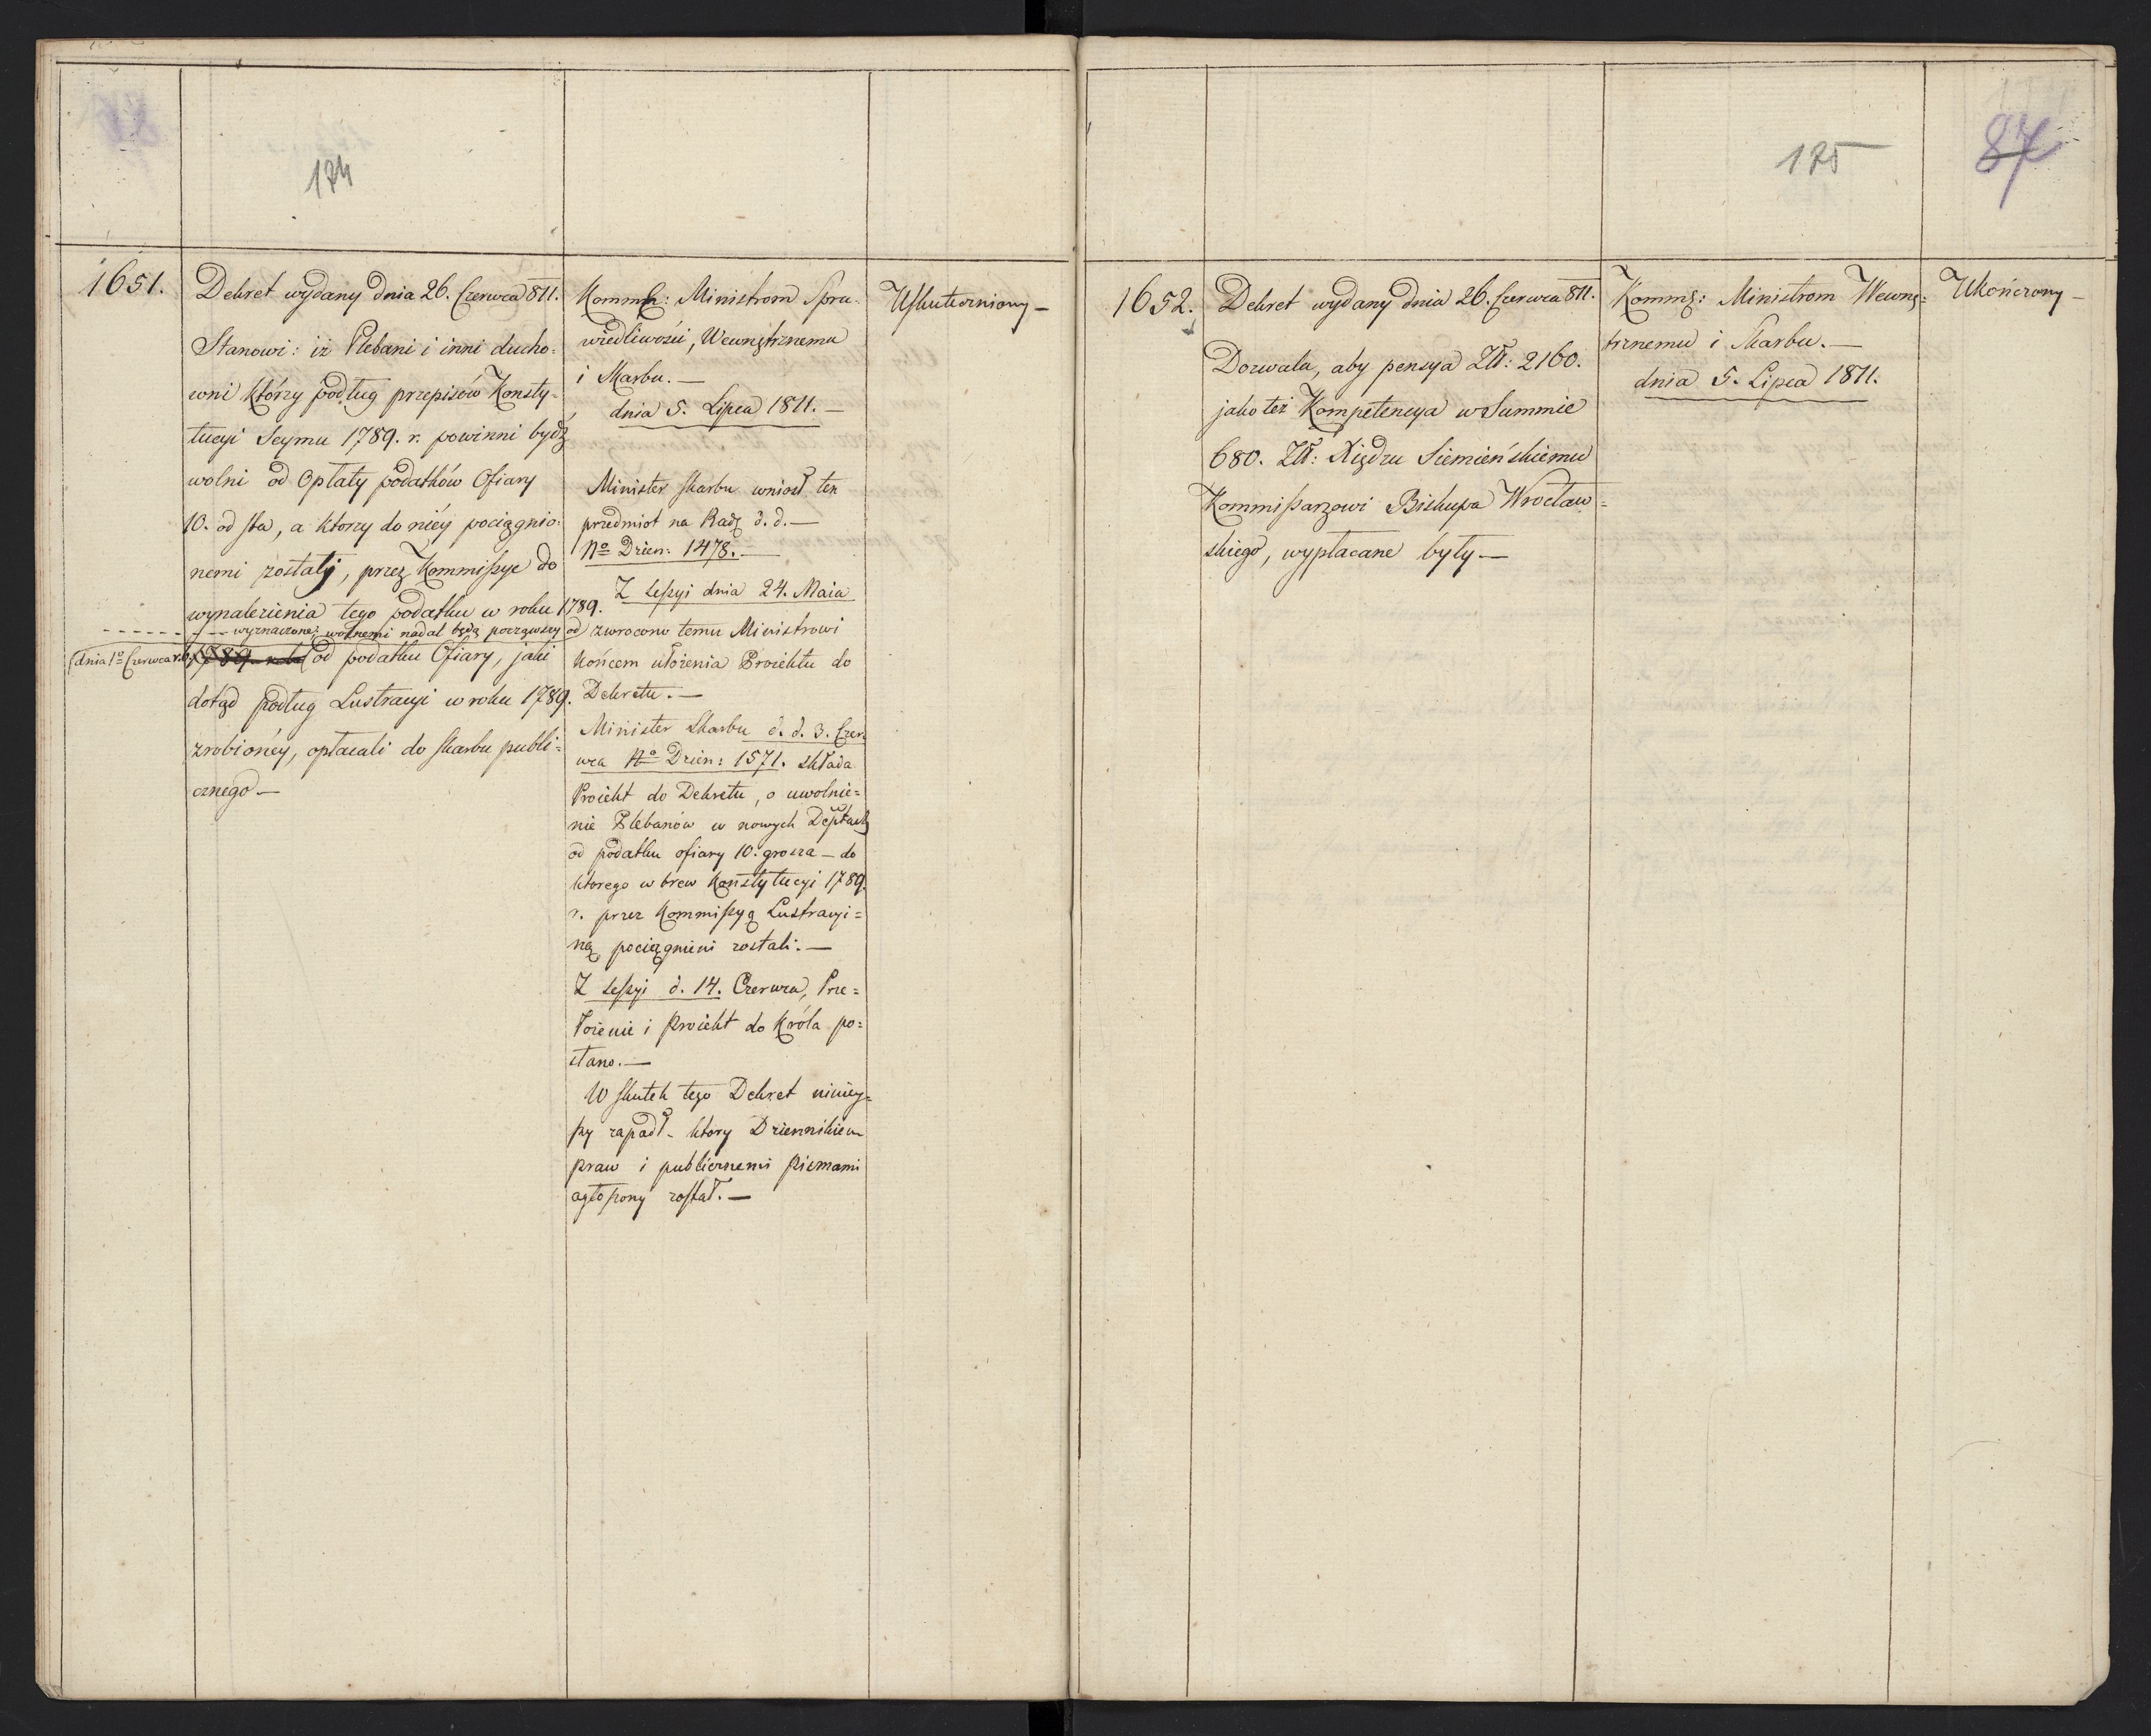 174
1651.
Dekret wydany dnia 26. Czerwca 811.
Stanowi: iż Plebani i inni ducho=
wni którzy podług przepisów Konsty=
tucyi Seymu 1789. r. powinni bydź
wolni od Opłaty podatków Ofiary
10. od sta, a ktorzy do niéy pociągnio:
nemi zostały, przez Kommißye do
wynalezienia tego podatku w roku 1789.
wyznaczone; wolnemi nadal będą począwszy od
dnia 1º Czerwca r. b.
od podatku Ofiary, jaki
dotąd podług Lustracyi w roku 1789.
zrobionéy, opłacali do skarbu publi=
cznego —
Ministrom Spra=
wiedliwości, Wewnętrznemu
i Skarbu. —
dnia 5. Lipca 1811. —
Minister skarbu wniosł ten
przedmiot na Radę d. d. —
Nº Dzien: 1478. —
Z Seßyi dnia 24. Maia
zwrocono temu Ministrowi
końcem ułożenia Proiektu do
Dekretu. —
Minister Skarbu d. d. 3. Czer=
wca Nº Dzien: 1571. składa
Proiekt do Dekretu, o uwolnie=
nie Plebanów w nowych Deptach
od podatku ofiary 10. grosza — do
ktorego w brew Konstytucyi 1789.
r. przez Kommißyą Lustracyi=
ną pociągnieni zostali. —
Z Seßyi d. 14. Czerwca, Prze=
łożenie i Proiekt do Króla po=
słano. —
W skutek tego Dekret niniey=
ßy zapadł - ktory Dziennikiem
praw i publicznemi pismami
ogłoßony został. —
Uskuteczniony —
175
87
1652.
Dekret wydany dnia 26. Czerwca 811.
Dozwala, aby pensya Zł: 2160.
jako też Kompetencya w Summie
680. Zł: Xiędzu Siemieńskiemu
Kommißarzowi Biskupa Wrocław=
skiego, wypłacane były —
Ministrom Wewnę=
trznemu i Skarbu. —
dnia 5. Lipca 1811.
Ukończony —